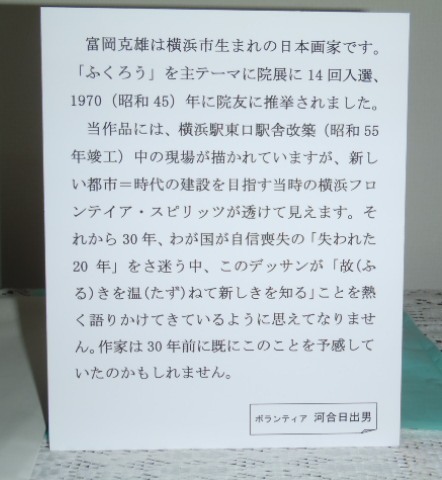 富岡克雄は横浜市生まれの日本画家です。
「ふくろう」を主テーマに院展に 14 回入選、
1970（昭和 45）年に院友に推挙されました。
当作品には、横浜駅東口駅舎改築（昭和 55
年竣工）中の現場が描かれていますが、新し
い都市＝時代の建設を目指す当時の横浜フロ
ンテイア・スピリッツが透けて見えます。そ
れから 30 年、わが国が自信喪失の「失われた
20 年」をさ迷う中、このデッサンが「故(ふ
る)きを温(たず)ねて新しきを知る」ことを熱
く語りかけてきているように思えてなりませ
ん。作家は 30 年前に既にこのことを予感して
いたのかもしれません。
ボランティア 河合日出男